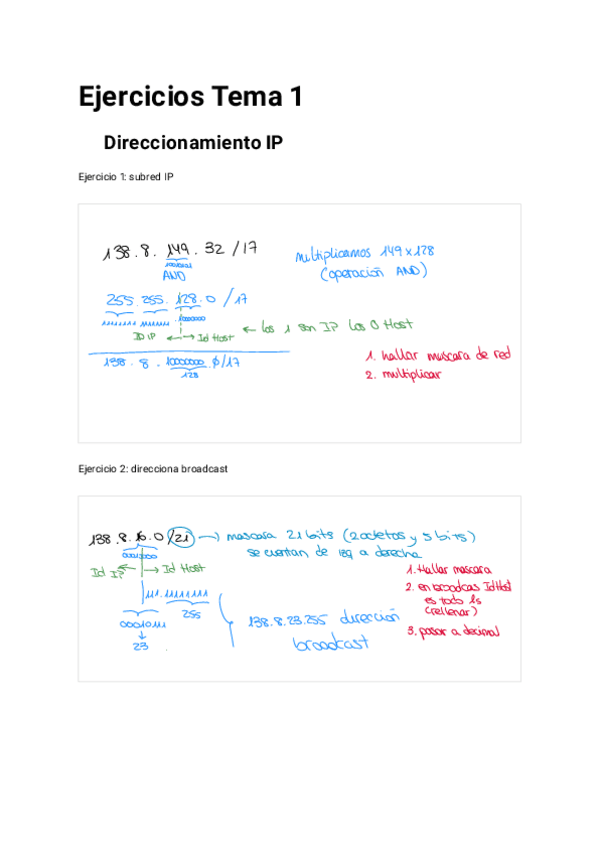 Ejercicios Tema 1
Direccionamiento IP
Ejercicio 1: subred IP
138.8.149.32/17
multiplicamos 149x128
AND
(operación AND)
255.255.128.0/17
11111111 11111111 .10000000
ID IP ← → Id Host ← los 1 son IP los 0 Host
138.8.10000000.0/17
128
1. hallar mascara de red
2. multiplicar
Ejercicio 2: direcciona broadcast
138.8.16.0/21 → mascara 21 bits (2 octetos y 5 bits)
00010000
se cuentan de izq a derecha
Id IP ← → Id Host
1. Hallar mascara
2. en broadcas Id Host
es todo 1s
(rellenar)
3. pasar a decimal
111.11111111
255
00010111
↓
23
138.8.23.255 dirección
broadcast